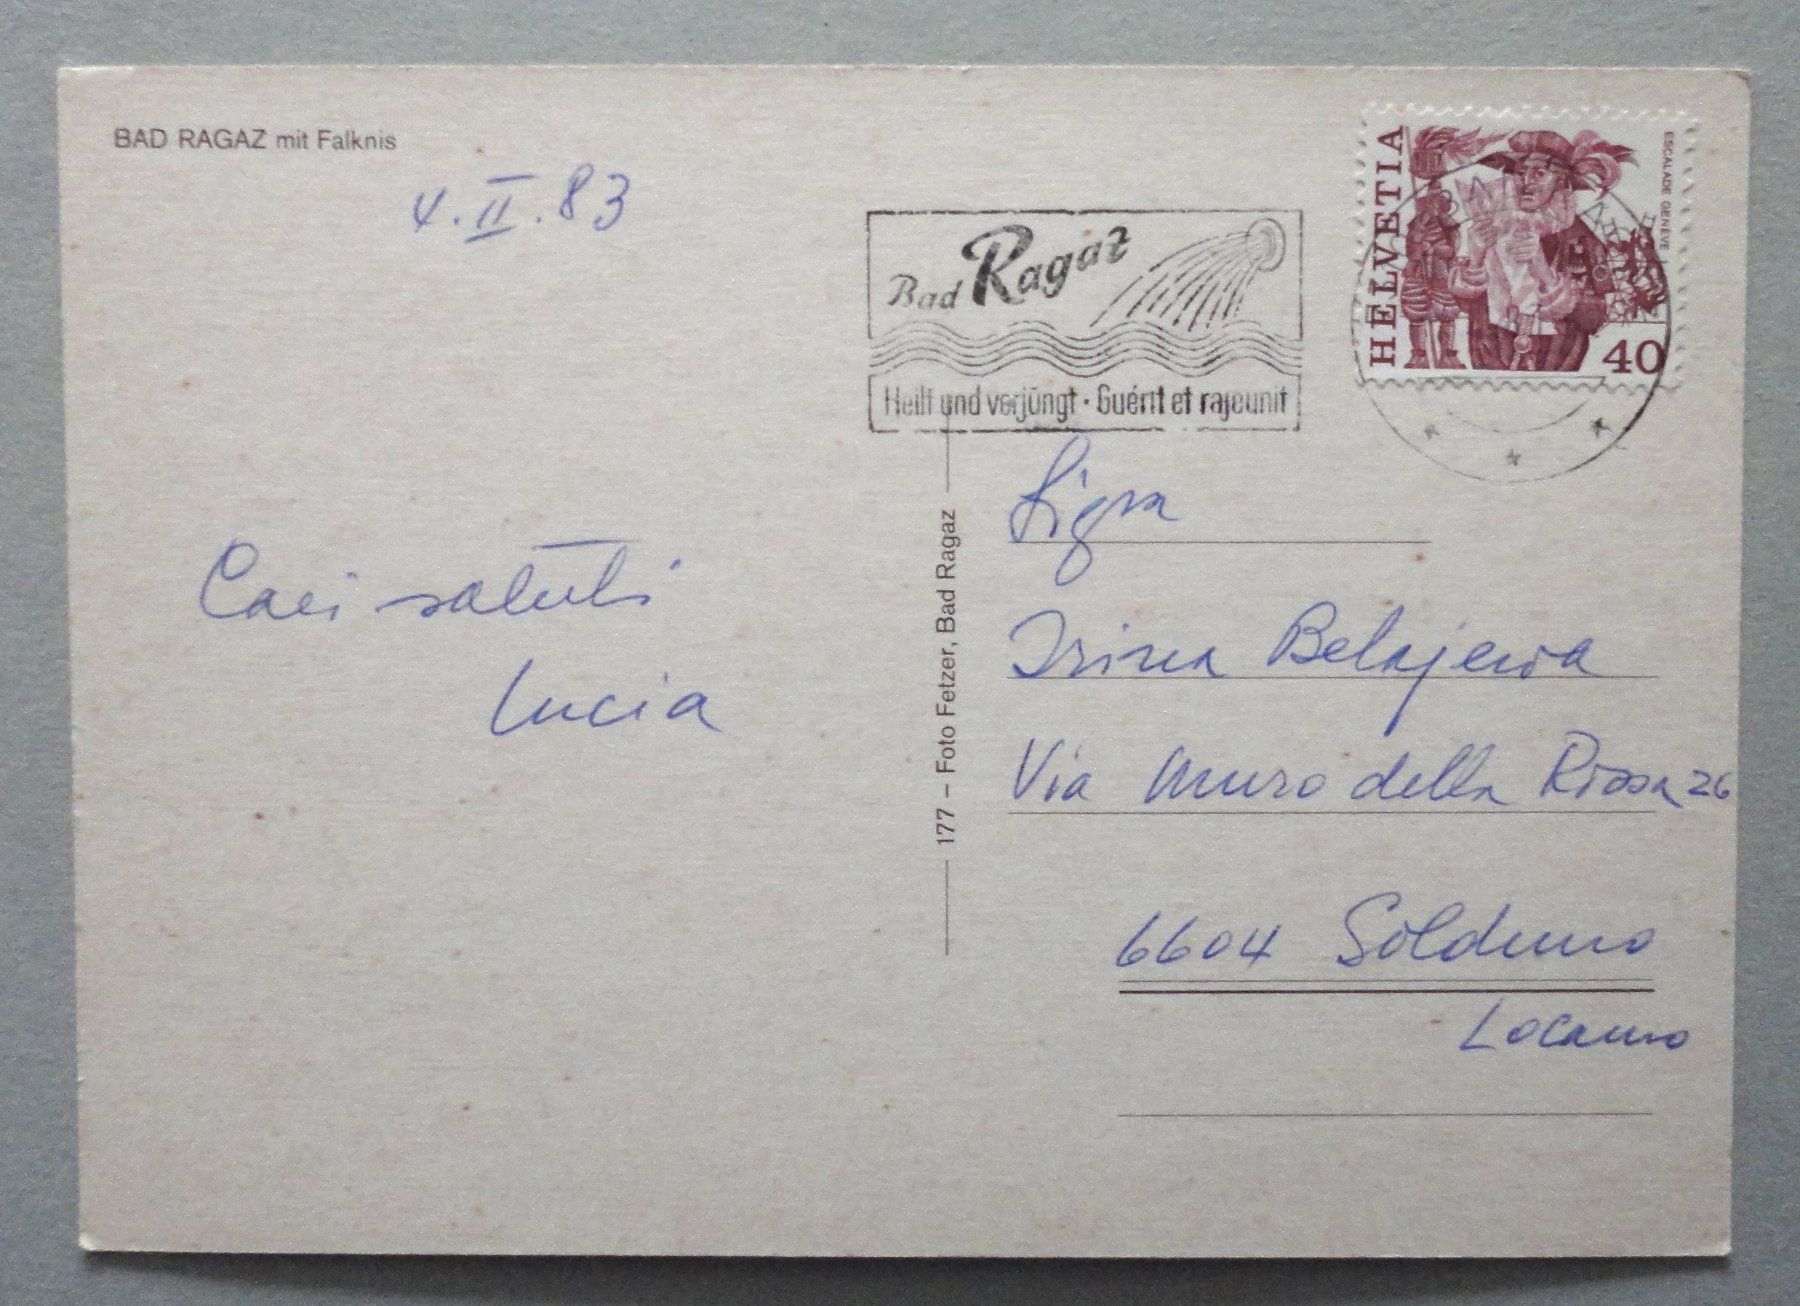 BAD RAGAZ mit Falknis
4.II.83
Cari saluti
Lucia
177 – Foto Fetzer, Bad Ragaz
Bad Ragaz
Heilt und verjüngt · Guérit et rajeunit
HELVETIA
ESCALADE GENÈVE
40
Sigra
Irina Belajewa
Via Muro della Rossa 26
6604 Solduno
Locarno